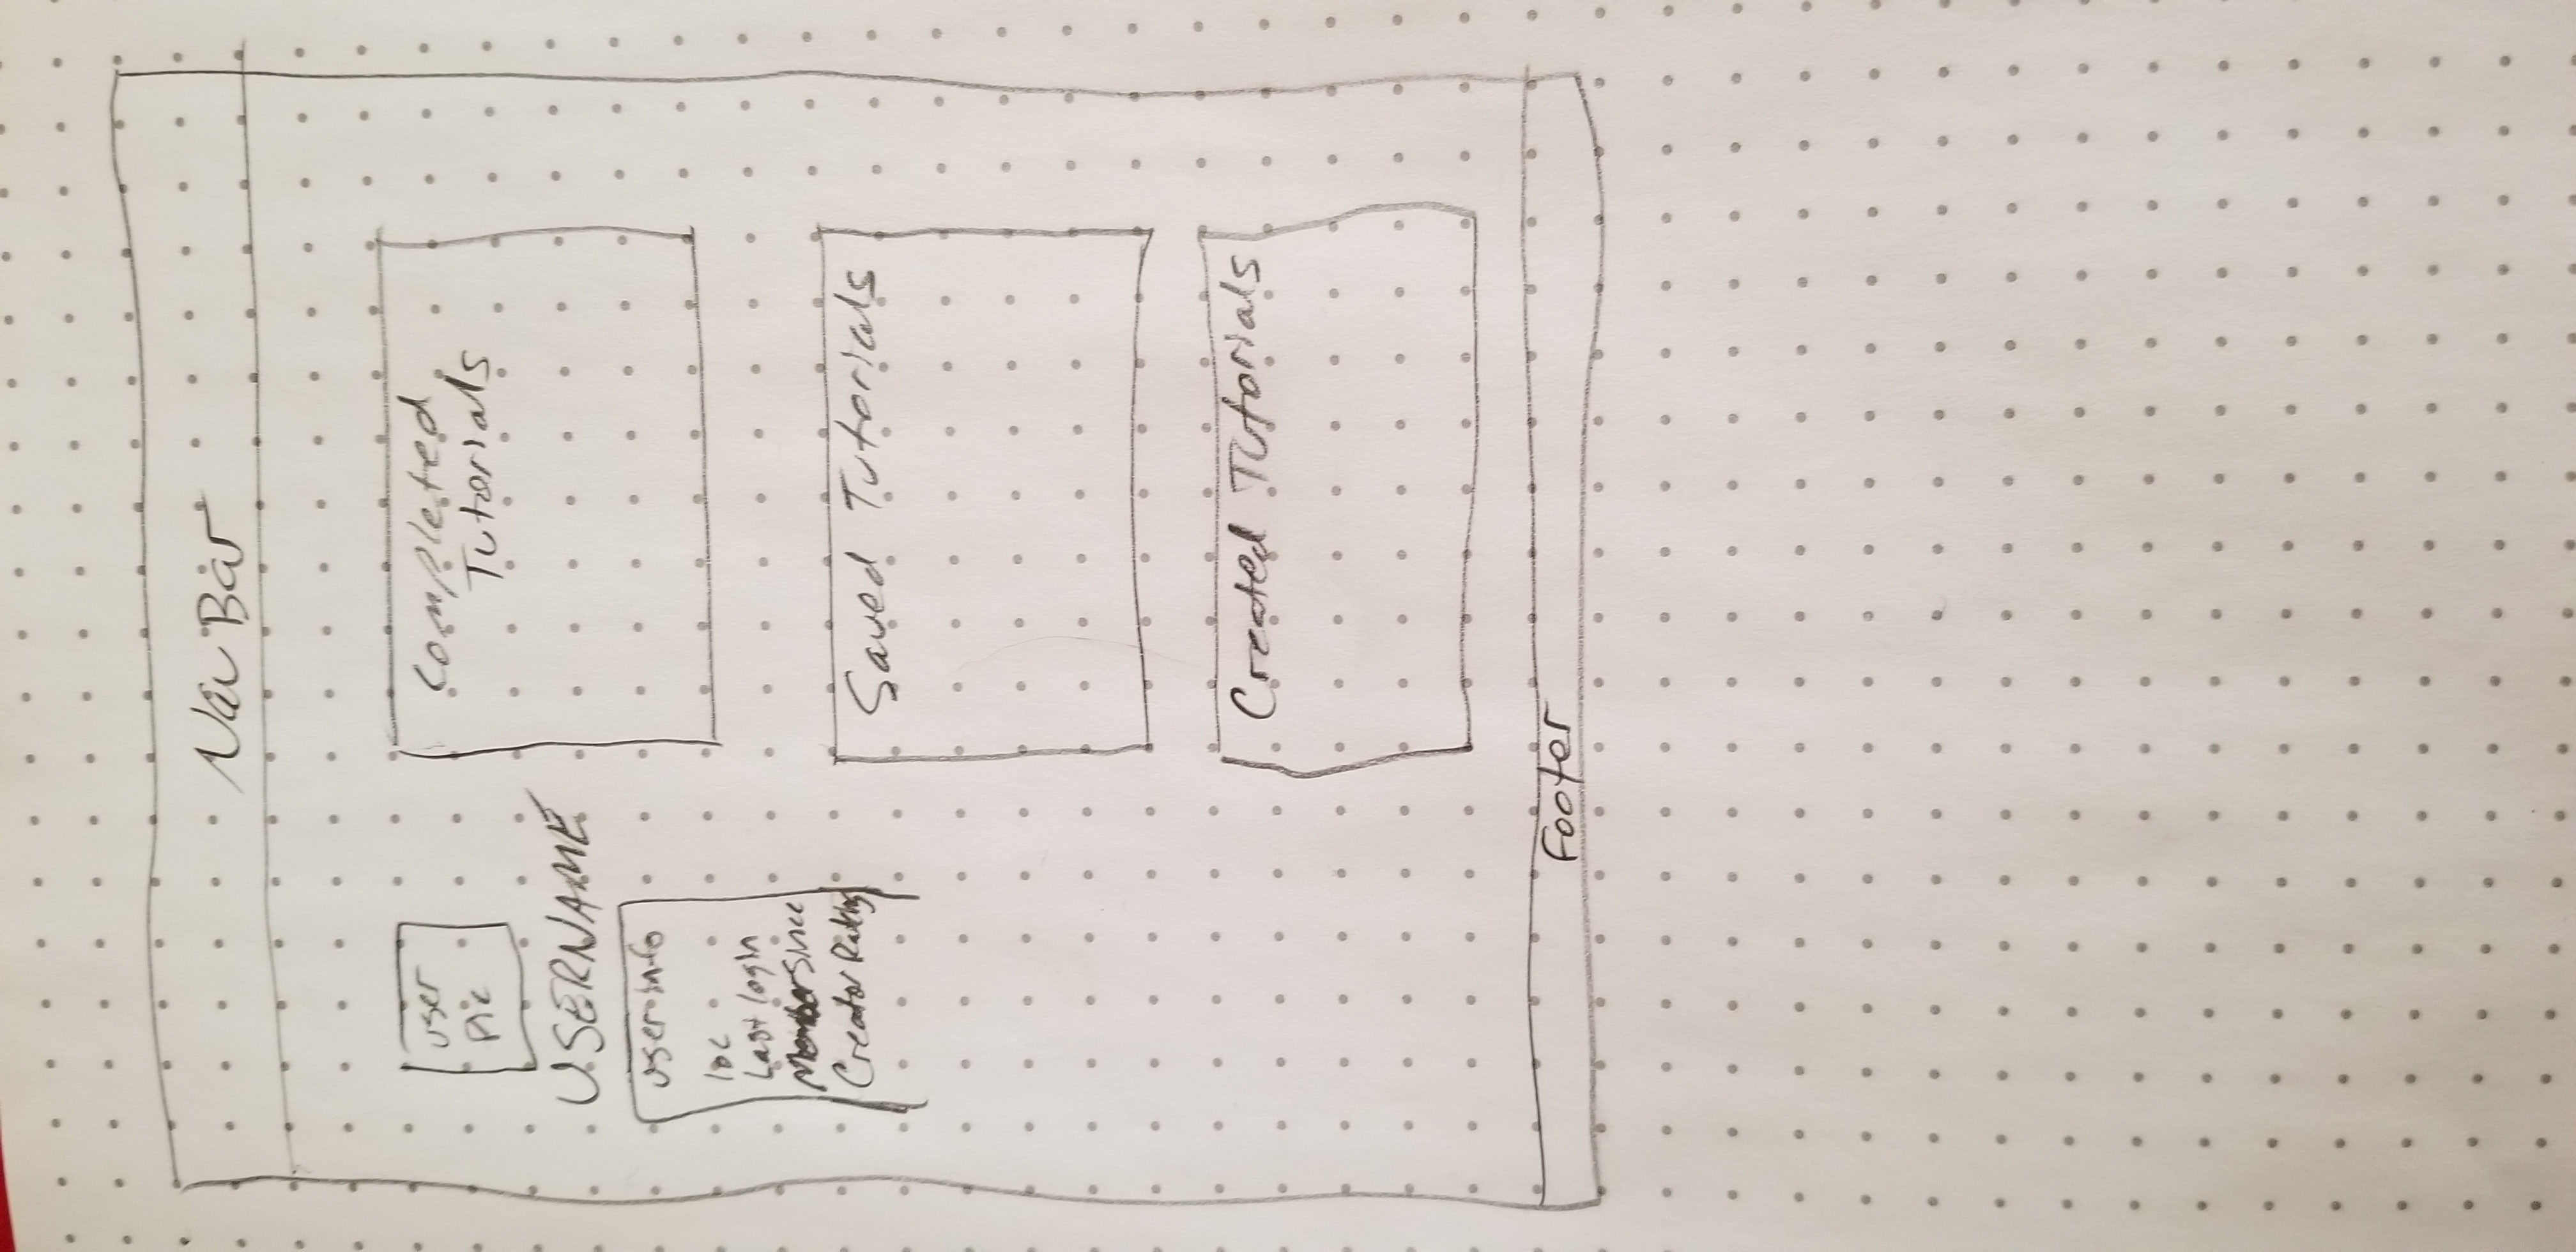 Nav Bar
User
Pic
USERNAME
user info
loc
Last login
Member Since
Creator Rating
Completed
Tutorials
Saved Tutorials
Created Tutorials
Footer